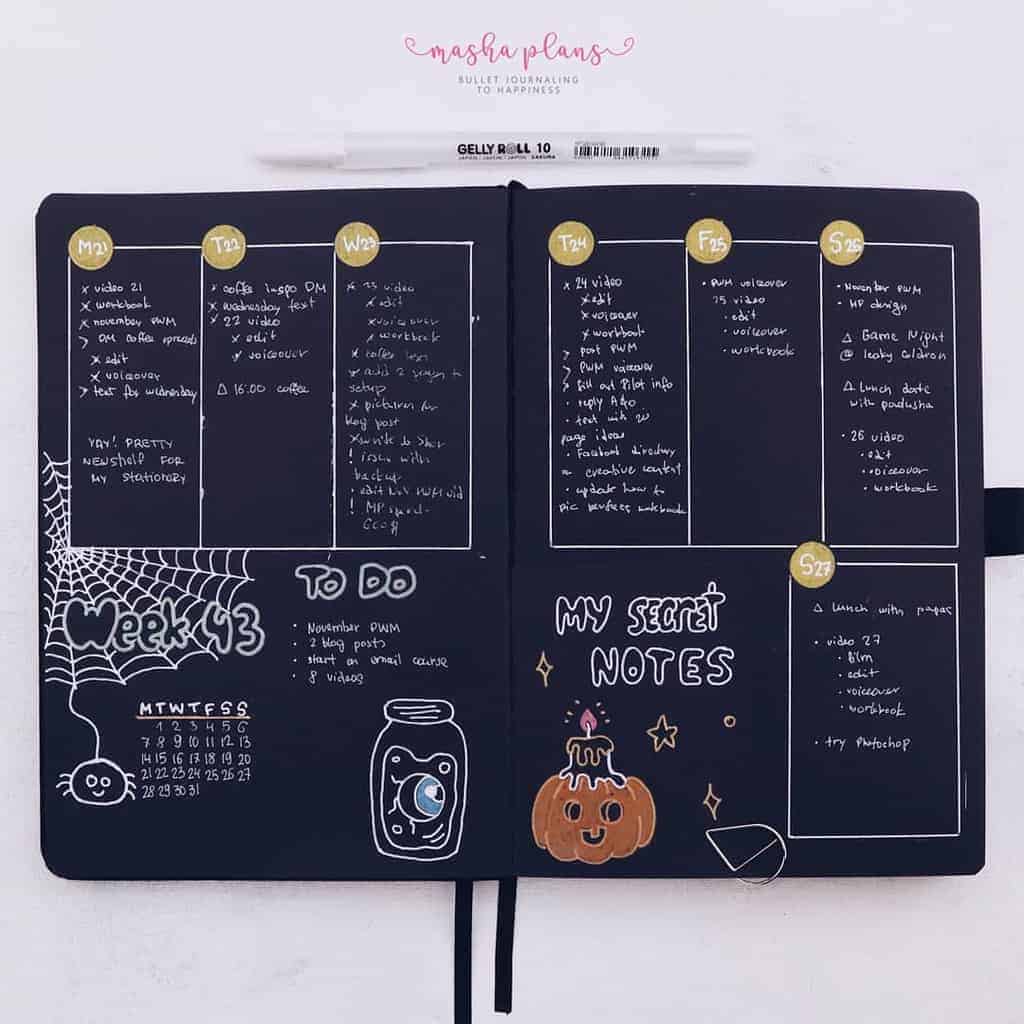 masha plans
BULLET JOURNALING
TO HAPPINESS
GELLY ROLL 10
SAKURA
M21
x video 21
x workbook
x november PWM
> DM coffee spreads
x edit
x voiceover
> text for wednesday
YAY! PRETTY
NEWSHELF FOR
MY STATIONARY
T22
x coffee inspo DM
x wednesday text
x 22 video
x edit
x voiceover
△ 16:00 coffee
W23
x 23 video
x edit
x voiceover
x workbook
x coffee text
add 2 pages to
setup
x pictures for
blog post
! issue with
backup
• edit Nov PWM vid
T24
x 24 video
x edit
x voiceover
x workbook
> post PWM
> PWM voiceover
> fill out Pilot info
• reply
• text with 20
page ideas
• Facebook directory
creative content
• update how to
pic perfect workbook
F25
• PWM voiceover
25 video
• edit
• voiceover
• workbook
S26
• November PWM
• MP design
△ Game Night
@ leaky Caldron
△ Lunch date
with padusha
• 26 video
• edit
• voiceover
• workbook
Week 43
M T W T F S S
1 2 3 4 5 6
7 8 9 10 11 12 13
14 15 16 17 18 19 20
21 22 23 24 25 26 27
28 29 30 31
TO DO
• November PWM
• 2 blog posts
• start an email course
• 8 videos
MY SECRET
NOTES
S27
△ Lunch with papas
• video 27
• film
• edit
• voiceover
• workbook
• try Photoshop